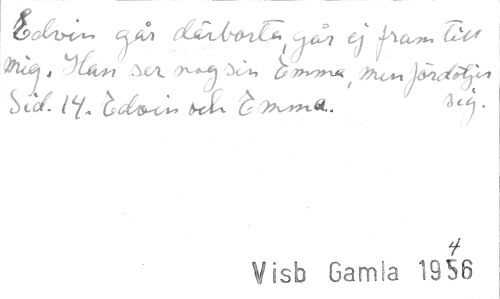 Edvin går därborta, går ej fram till
mig. Han ser nog sin Emma, men fördöljer
sig.
Sid. 14. Edvin och Emma.
4
Visb Gamla 1956